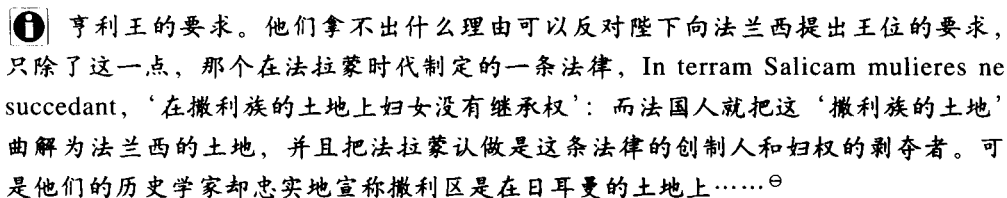 亨利王的要求。他们拿不出什么理由可以反对陛下向法兰西提出王位的要求，
只除了这一点，那个在法拉蒙时代制定的一条法律，In terram Salicam mulieres ne
succedant，‘在撒利族的土地上妇女没有继承权’：而法国人就把这‘撒利族的土地’
曲解为法兰西的土地，并且把法拉蒙认做是这条法律的创制人和妇权的剥夺者。可
是他们的历史学家却忠实地宣称撒利区是在日耳曼的土地上……⊖